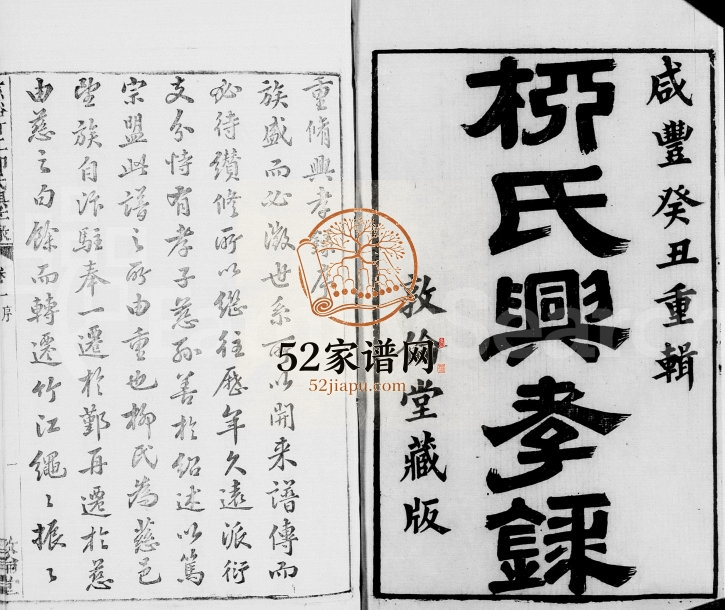 咸豐癸丑重輯
柳氏興孝錄
敦倫堂藏版
重脩興孝錄序
族盛而必徵世系所以開来譜傳而
必待纘修所以继往歷年久遠派衍
支分恃有孝子慈孙善於紹述以篤
宗盟此譜之所由重也柳氏為慈邑
望族自派駐奉一遷於鄞再遷於慈
由慈之句餘而轉遷竹江繩〻振〻
52家谱网
52jiapu.com